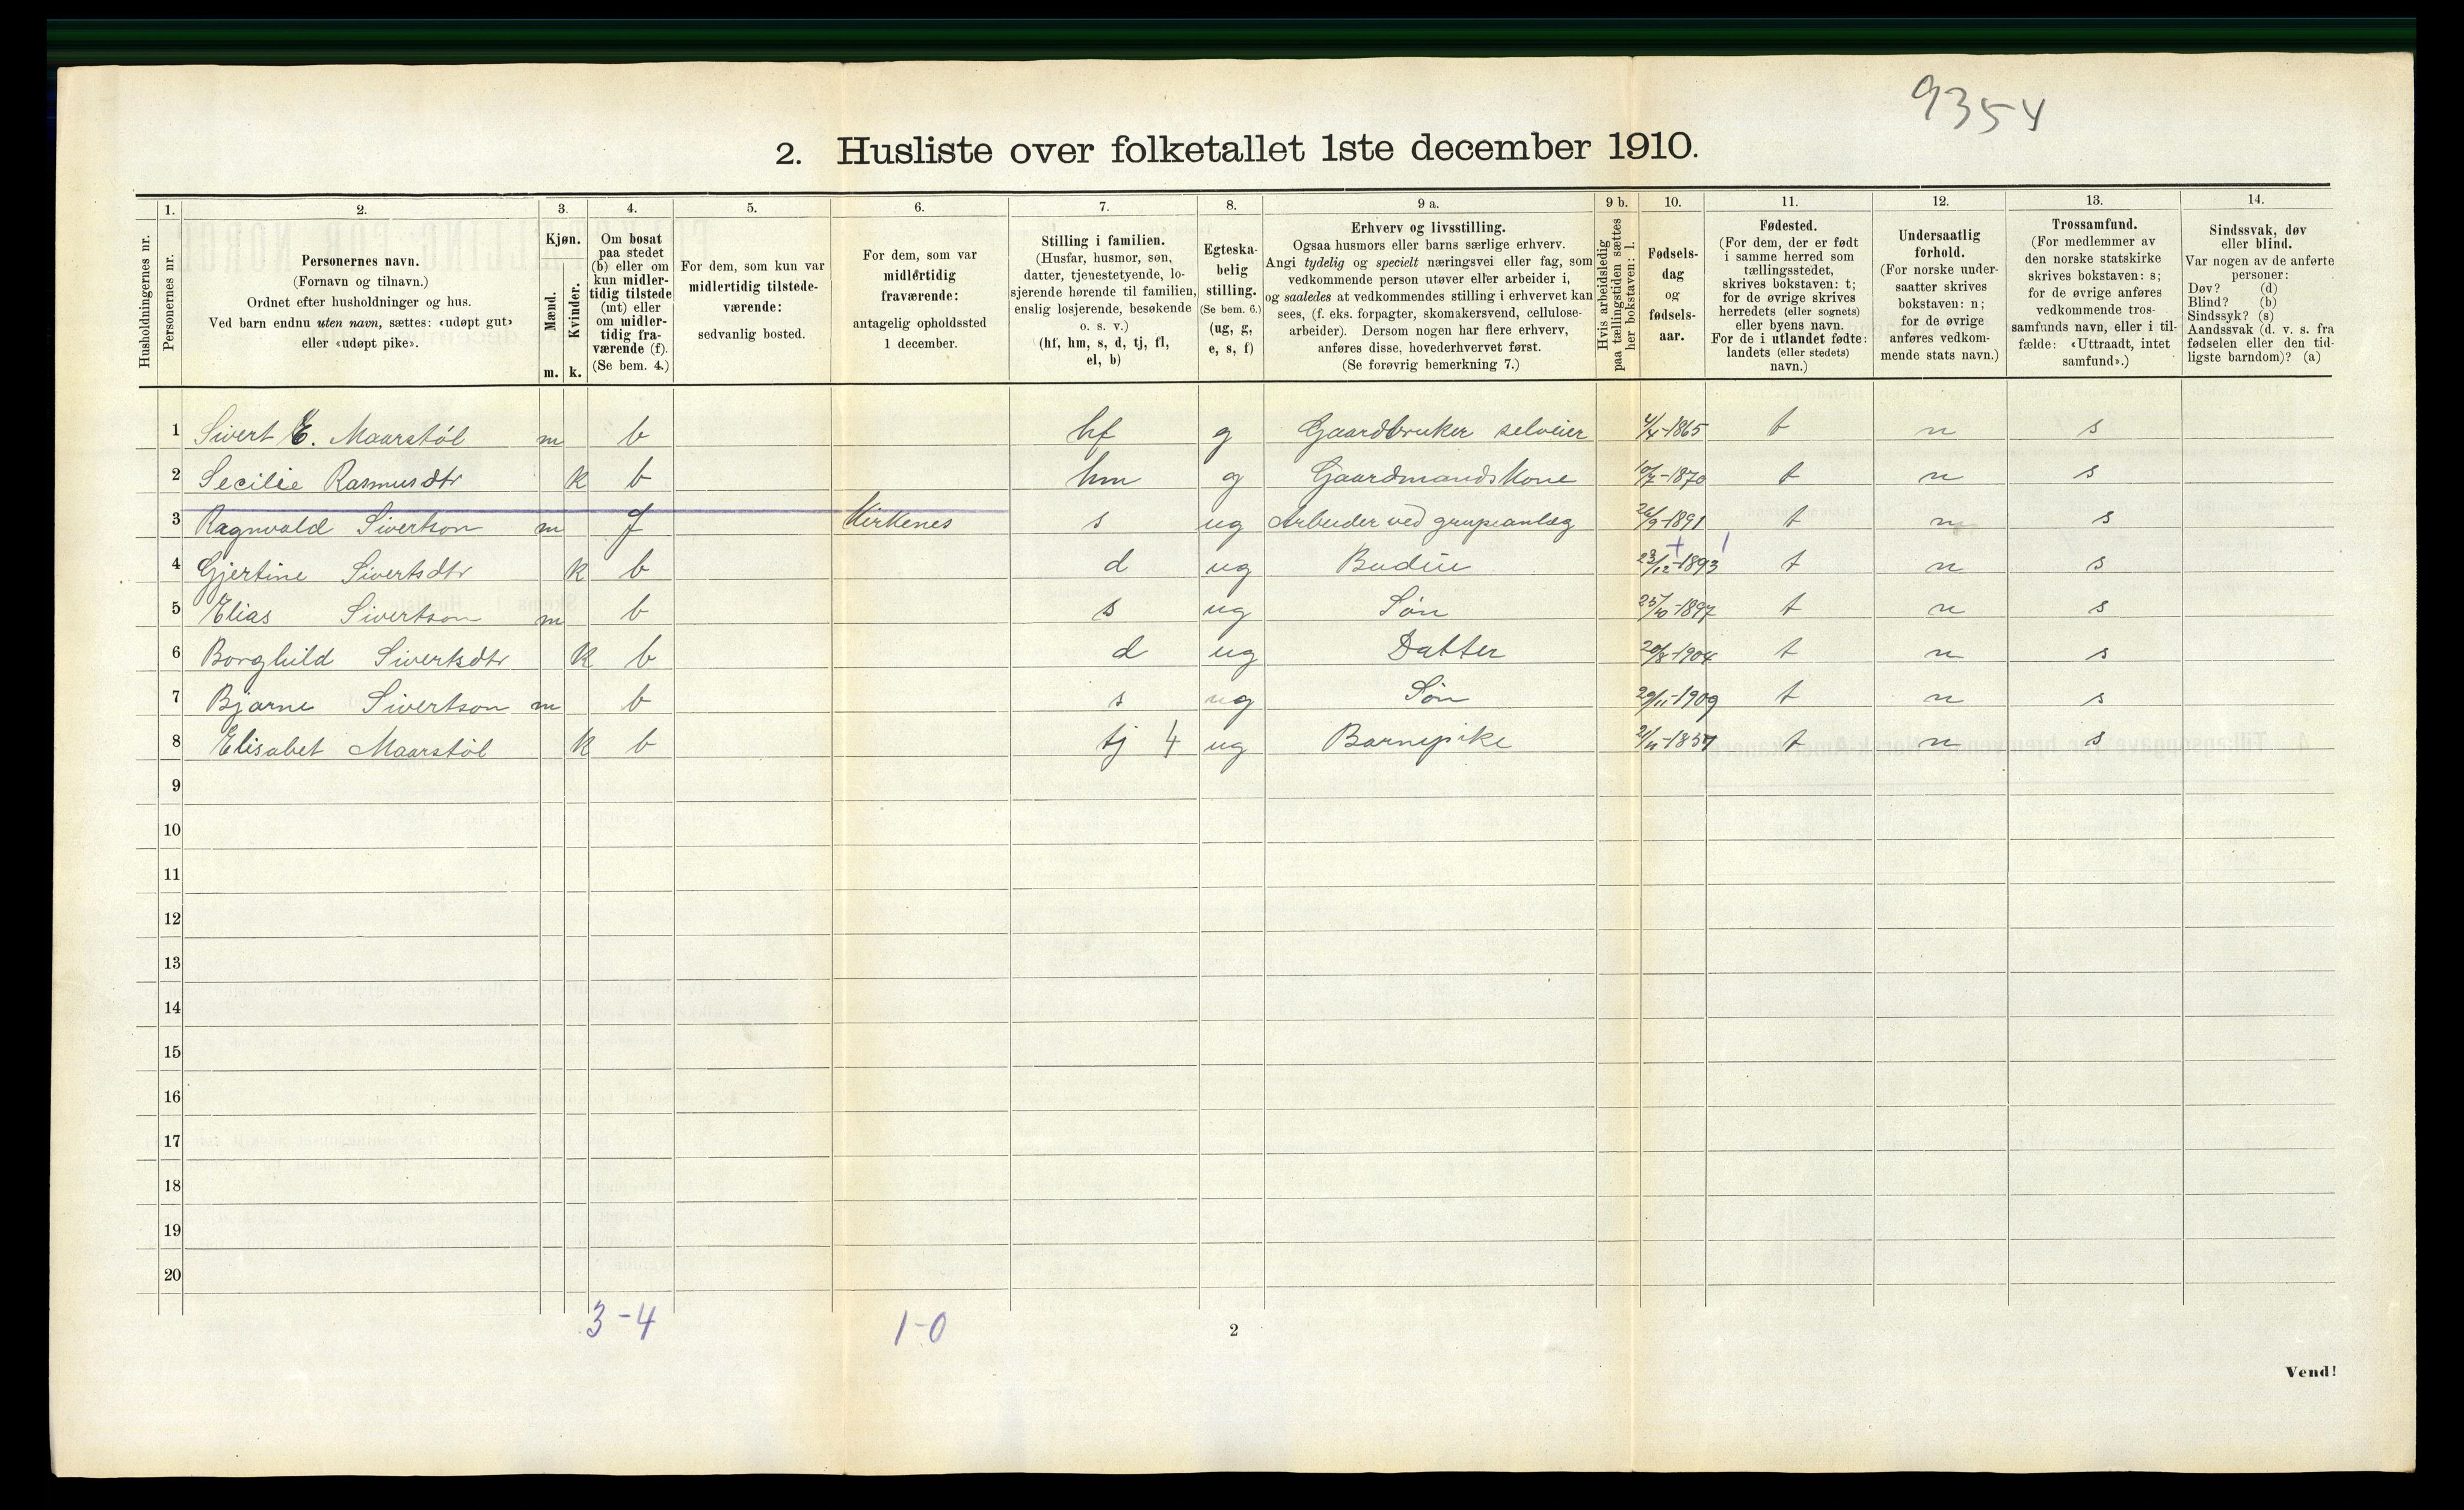 9354
2. Husliste over folketallet 1ste december 1910.
Husholdningernes nr.
1.
Personernes nr.
2.
Personernes navn.
(Fornavn og tilnavn.)
Ordnet efter husholdninger og hus.
Ved barn endnu uten navn, sættes: «udøpt gut»
eller «udøpt pike».
3.
Kjøn.
Mænd.
Kvinder.
m. k.
4.
Om bosat
paa stedet
(b) eller om
kun midler-
tidig tilstede
(mt) eller
om midler-
tidig fra-
værende (f).
(Se bem. 4.)
5.
For dem, som kun var
midlertidig tilstede-
værende:
sedvanlig bosted.
6.
For dem, som var
midlertidig
fraværende:
antagelig opholdssted
1 december.
7.
Stilling i familien.
(Husfar, husmor, søn,
datter, tjenestetyende, lo-
sjerende hørende til familien,
enslig losjerende, besøkende
o. s. v.)
(hf, hm, s, d, tj, fl,
el, b)
8.
Egteska-
belig
stilling.
(Se bem. 6.)
(ug, g,
e, s, f)
9 a.
Erhverv og livsstilling.
Ogsaa husmors eller barns særlige erhverv.
Angi tydelig og specielt næringsvei eller fag, som
vedkommende person utøver eller arbeider i,
og saaledes at vedkommendes stilling i erhvervet kan
sees, (f. eks. forpagter, skomakersvend, cellulose-
arbeider). Dersom nogen har flere erhverv,
anføres disse, hovederhvervet først.
(Se forøvrig bemerkning 7.)
9 b.
Hvis arbeidsledig
paa tællingstiden sættes
her bokstaven: l.
10.
Fødsels-
dag
og
fødsels-
aar.
11.
Fødested.
(For dem, der er født
i samme herred som
tællingsstedet,
skrives bokstaven: t;
for de øvrige skrives
herredets (eller sognets)
eller byens navn.
For de i utlandet fødte:
landets (eller stedets)
navn.)
12.
Undersaatlig
forhold.
(For norske under-
saatter skrives
bokstaven: n;
for de øvrige
anføres vedkom-
mende stats navn.)
13.
Trossamfund.
(For medlemmer av
den norske statskirke
skrives bokstaven: s;
for de øvrige anføres
vedkommende tros-
samfunds navn, eller i til-
fælde: «Uttraadt, intet
samfund».)
14.
Sindssvak, døv
eller blind.
Var nogen av de anførte
personer:
Døv? (d)
Blind? (b)
Sindssyk? (s)
Aandssvak (d. v. s. fra
fødselen eller den tid-
ligste barndom)? (a)
1 Sivert E. Maarstøl m b hf g Gaardbruker selveier 4/4-1865 t n s
2 Secilie Rasmusdtr k b hm g Gaardmandskone 10/7-1870 t n s
3 Ragnvald Sivertson m f Kirkenes s ug Arbeider ved grupeanlæg 26/9-1891 t n s
4 Gjertine Sivertsdtr k b d ug Budeie 23/12-1893 t n s
5 Elias Sivertson m b s ug Søn 25/10-1897 t n s
6 Borghild Sivertsdtr k b d ug Datter 20/8-1904 t n s
7 Bjarne Sivertson m b s ug Søn 29/11-1909 t n s
8 Elisabet Maarstøl k b tj 4 ug Barnepike 21/11-1857 t n s
9
10
11
12
13
14
15
16
17
18
19
20
3-4 1-0
2
Vend!